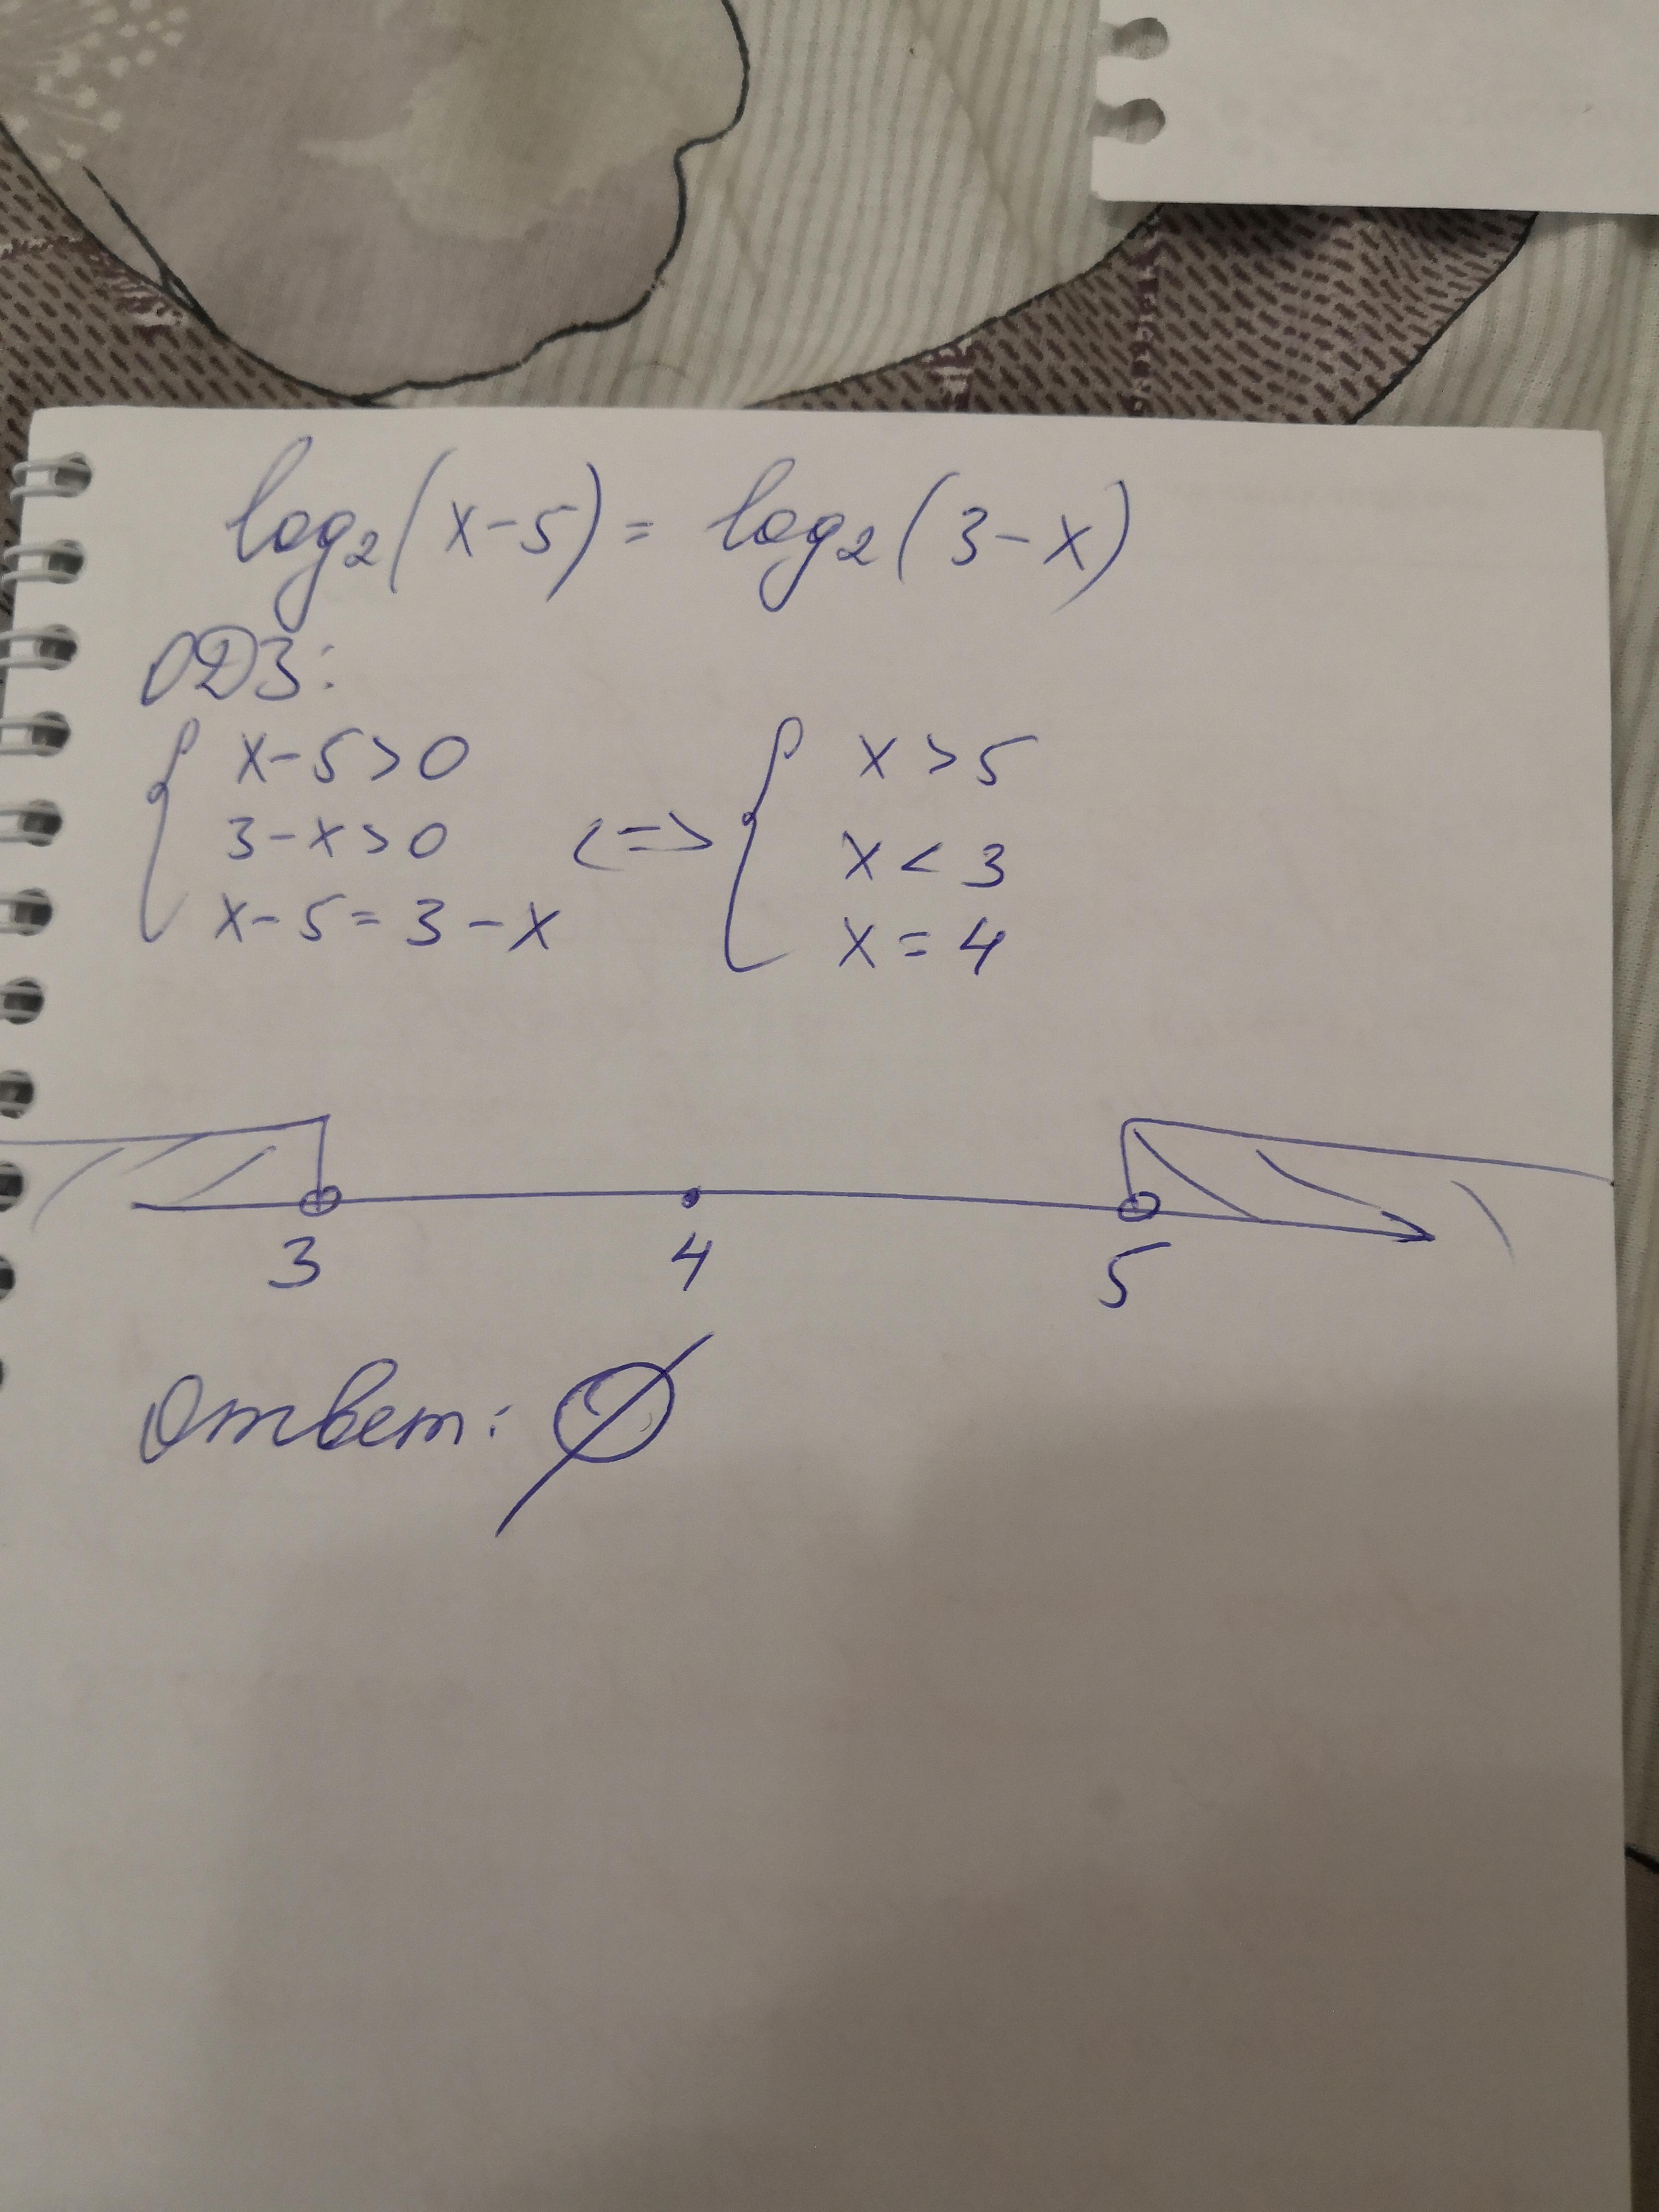 log₂(x-5) = log₂(3-x)
ОДЗ:
{ x-5>0
3-x>0
x-5=3-x <=> { x>5
x<3
x=4
3 4 5
Ответ: ∅